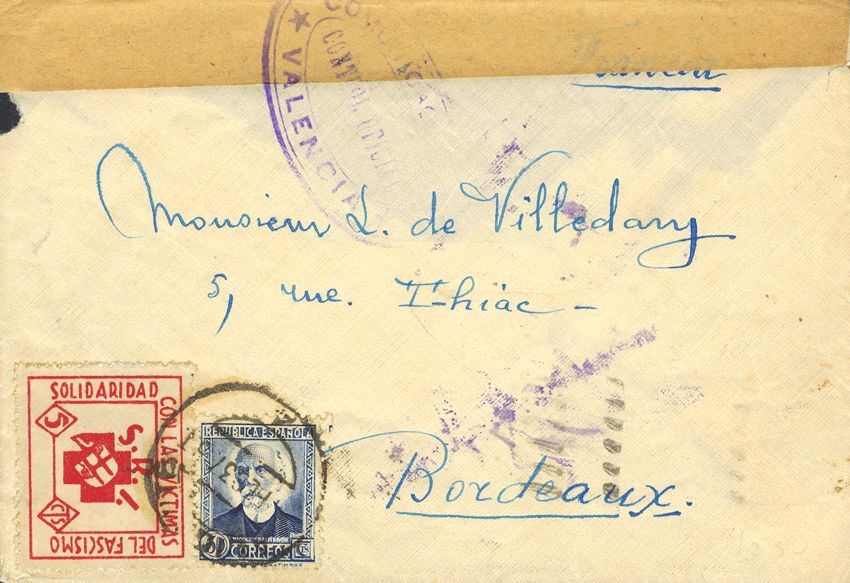 VALENCIA
Monsieur L. de Villedary
5, rue. Thiac -
Bordeaux.
SOLIDARIDAD
CON LAS VICTIMAS
DEL FASCISMO
S.R.I.
5
CTS
REPUBLICA ESPAÑOLA
CORREOS